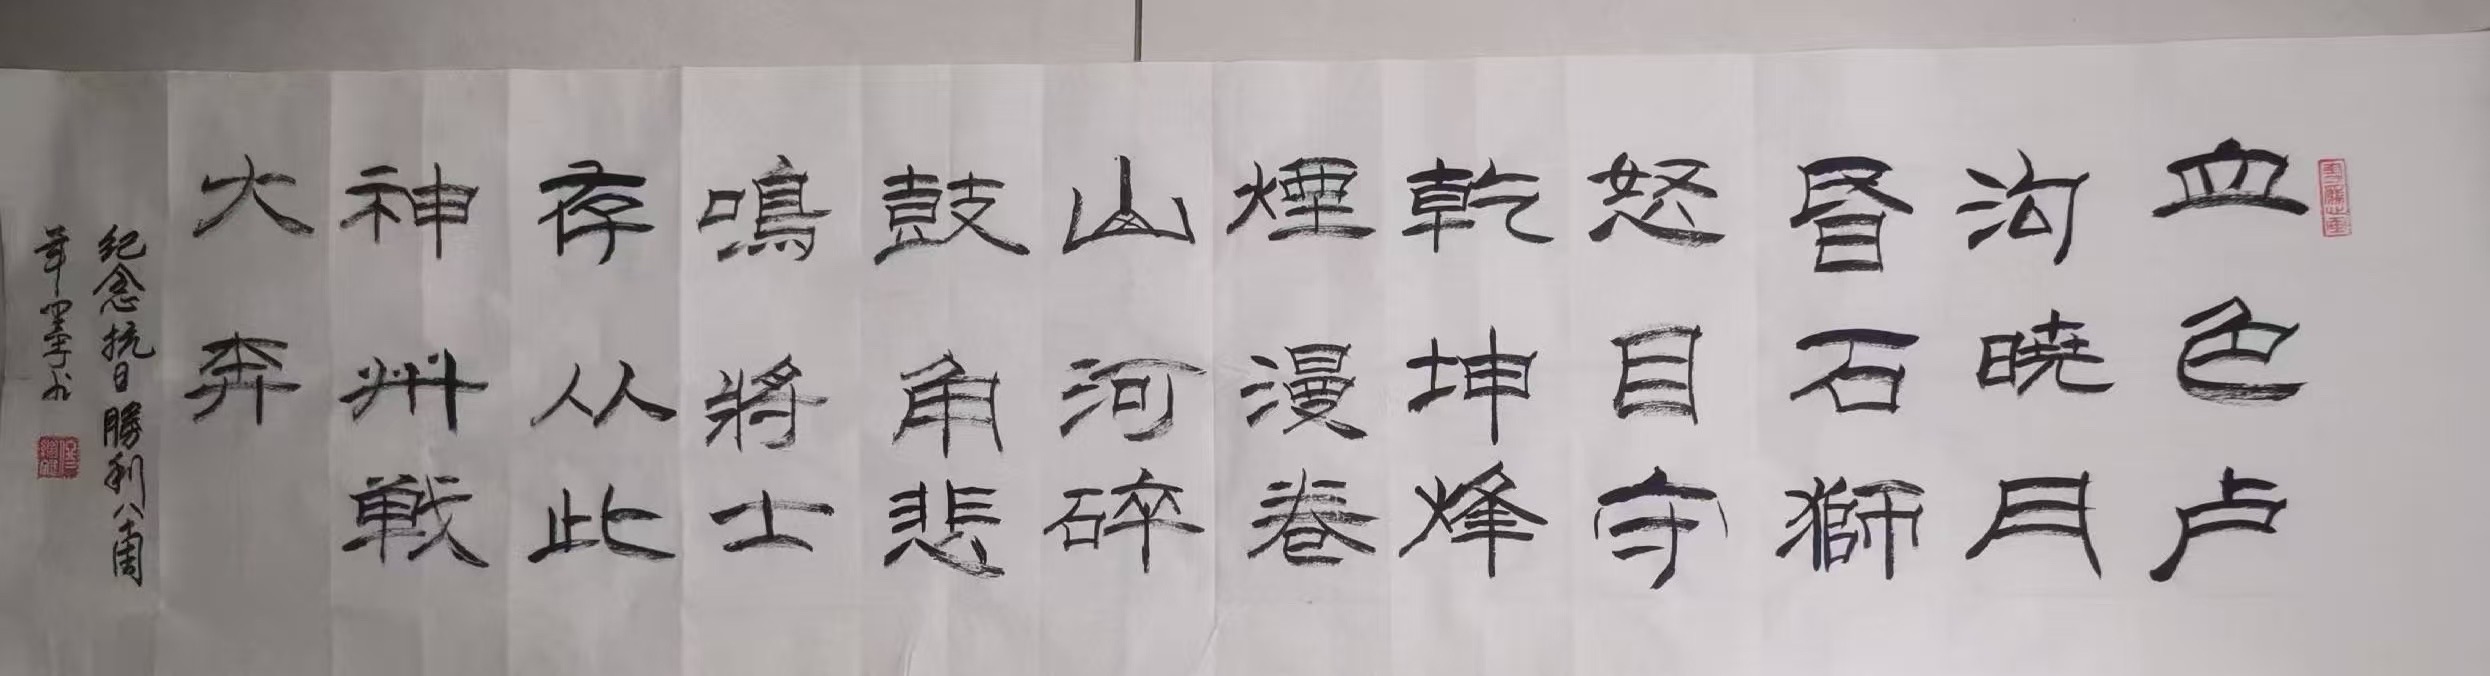 血色卢
沟晓月
昏石獅
怒目守
乾坤烽
煙漫卷
山河碎
鼓角悲
鳴將士
存从此
神州戦
大奔
纪念抗日勝利八十周
年